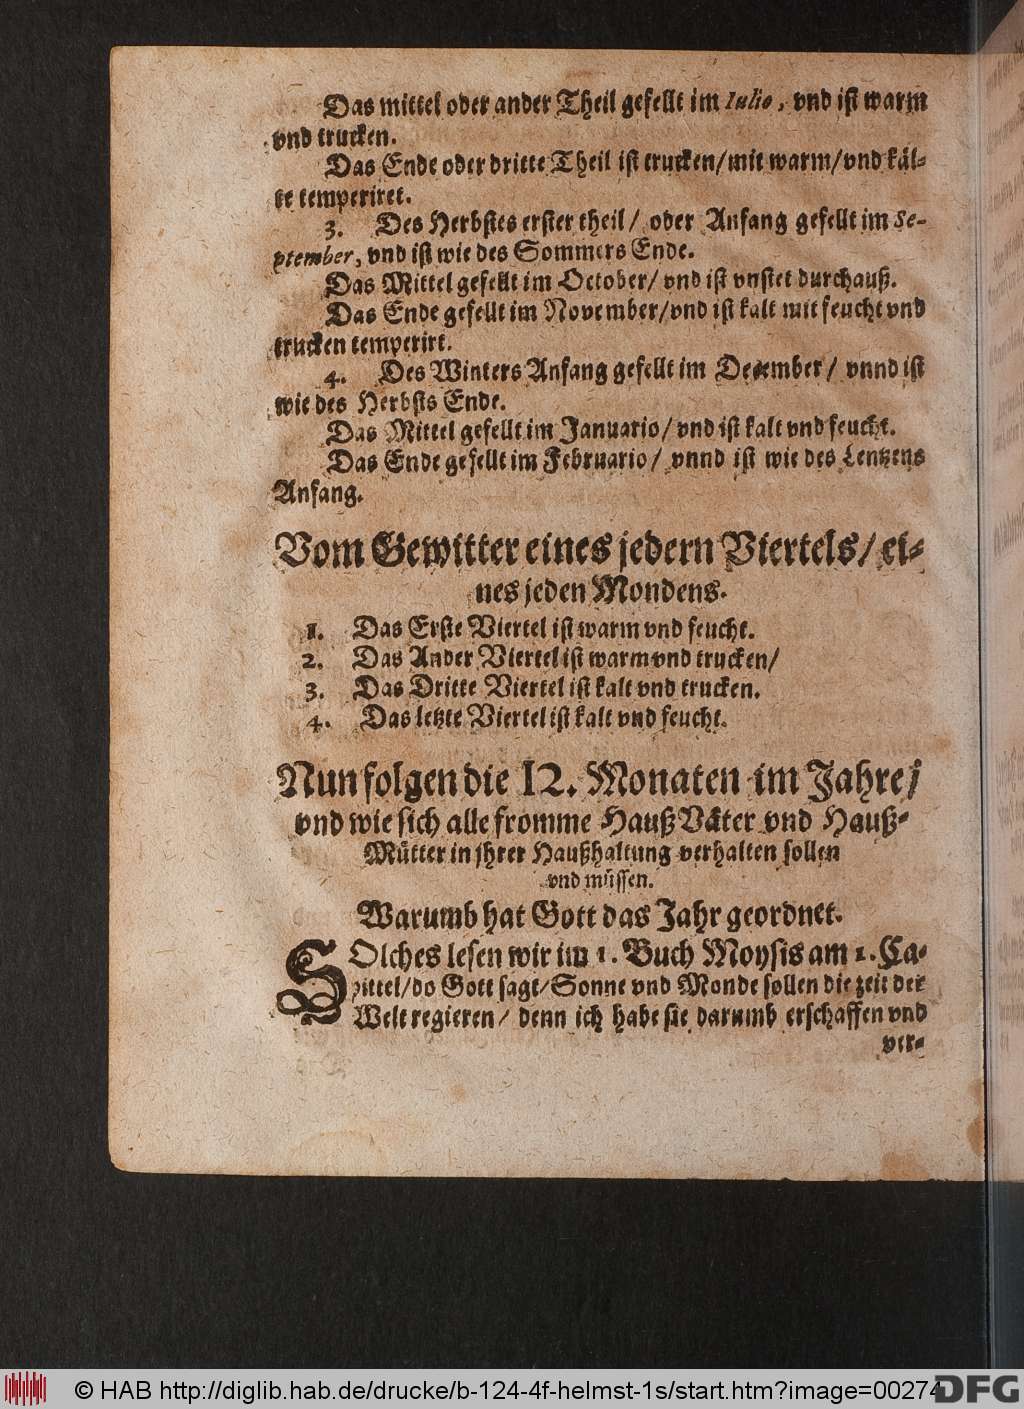 Das mittel oder ander Theil gefellt im Iulio, vnd ist warm
vnd trucken.
Das Ende oder dritte Theil ist trucken/mit warm/vnd käl-
te temperiret.
3. Des Herbstes erster theil/ oder Anfang gefellt im Se-
ptember, vnd ist wie des Sommers Ende.
Das Mittel gefellt im October/ vnd ist vnstet durchauß.
Das Ende gefellt im November/vnd ist kalt mit feucht vnd
trucken temperirt.
4. Des Winters Anfang gefellt im December/ vnnd ist
wie des Herbsts Ende.
Das Mittel gefellt im Januario/ vnd ist kalt vnd feucht.
Das Ende gefellt im Februario/ vnnd ist wie des Lentzens
Anfang.
Vom Gewitter eines jedern Viertels/ ei-
nes jeden Mondens.
1. Das Erste Viertel ist warm vnd feucht.
2. Das Ander Viertel ist warm vnd trucken/
3. Das Dritte Viertel ist kalt vnd trucken.
4. Das letzte Viertel ist kalt vnd feucht.
Nun folgen die 12. Monaten im Jahre/
vnd wie sich alle fromme Hauß Väter vnd Hauß-
Mütter in jhrer Haußhaltung verhalten sollen
vnd müssen.
Warumb hat Gott das Jahr geordnet.
SOlches lesen wir im 1. Buch Moysis am 1. Ca-
pittel/do Gott sagt/Sonne vnd Monde sollen die zeit der
Welt regieren/ denn ich habe sie darumb erschaffen vnd
ver-
© HAB http://diglib.hab.de/drucke/b-124-4f-helmst-1s/start.htm?image=00274
DFG